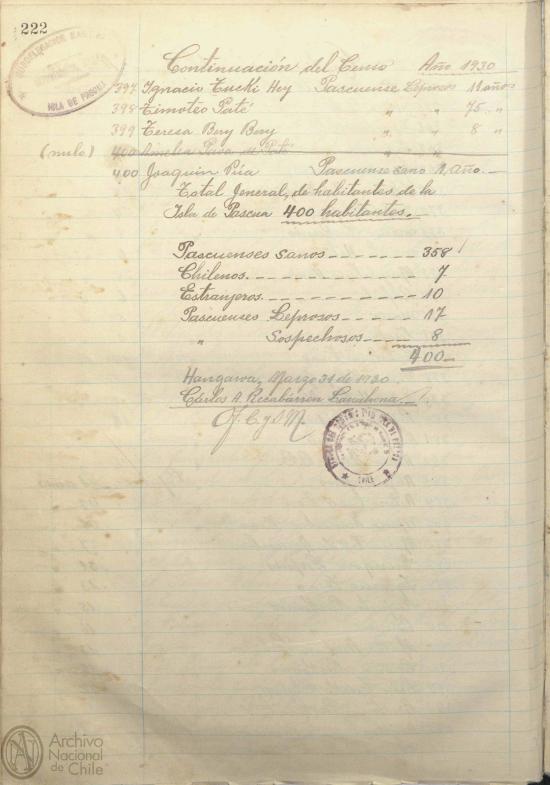 222
ISLA DE PASCUA
Continuación del Censo Año 1930
397 Ignacio Tucki Hey Pascuense Leproso 11 años
398 Timoteo Paté " " 75 "
399 Teresa Bery Bery " " 8 "
(nulo) 400 Amelia de Paté " "
400 Joaquin Púa Pascuense sano 1 Año.
Total General, de habitantes de la
Isla de Pascua 400 habitantes.
Pascuenses sanos ------- 358
Chilenos. ---------- 7
Estranjeros. --------- 10
Pascuenses Leprosos ----- 17
" Sospechosos ---- 8
400
Hangaroa, Marzo 31 de 1930.
Cárlos A. Recabárren
J. C. y S. M.
CHILE
Archivo
Nacional
de Chile